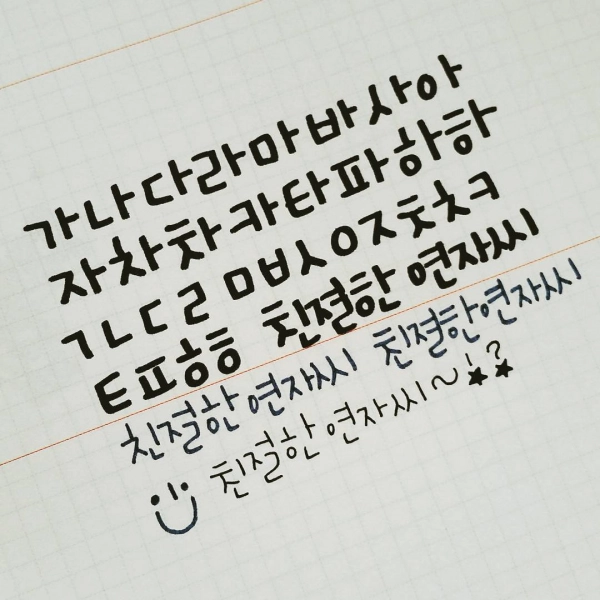 가나다라마바사아
자차차카타파하하
ㄱㄴㄷㄹ ㅁㅂㅅㅇㅈㅊㅊㅋ
ㅌㅍㅎㅎ 친절한 연자씨
친절한 연자씨 친절한연자씨
친절한 연자씨~!?